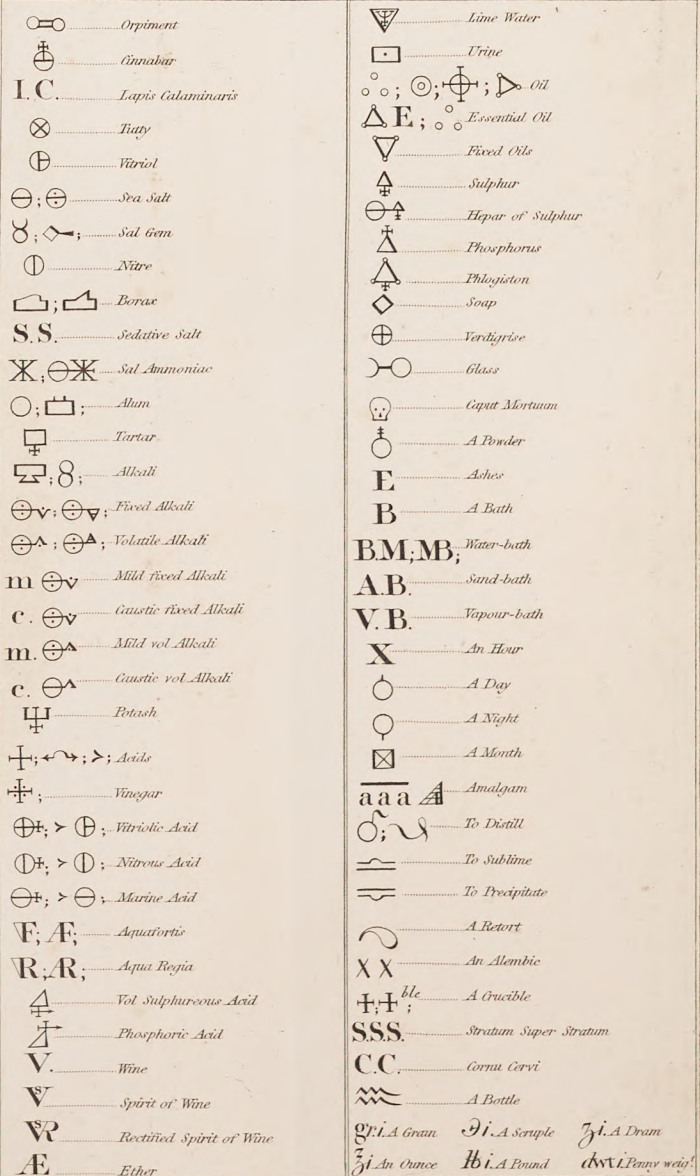 Orpiment
Cinnabar
I. C. Lapis Calaminaris
Tutty
Vitriol
; Sea Salt
; ; Sal Gem
Nitre
; Borax
S. S. Sedative Salt
; Sal Ammoniac
; ; Alum
Tartar
; ; Alkali
; ; Fixed Alkali
; ; Volatile Alkali
m Mild fixed Alkali
c. Caustic fixed Alkali
m. Mild vol Alkali
c. Caustic vol Alkali
Potash
; ; ; Acids
; Vinegar
; ; Vitriolic Acid
; ; Nitrous Acid
; ; Marine Acid
F; Æ; Aquafortis
R; Æ; Aqua Regia
Vol Sulphureous Acid
Phosphoric Acid
V. Wine
V Spirit of Wine
VR Rectified Spirit of Wine
Æ Ether
Lime Water
Urine
; ; ; Oil
E ; Essential Oil
Fixed Oils
Sulphur
Hepar of Sulphur
Phosphorus
Phlogiston
Soap
Verdigrise
Glass
Caput Mortuum
A Powder
E Ashes
B A Bath
B.M; MB; Water-bath
A.B. Sand-bath
V. B. Vapour-bath
X An Hour
A Day
A Night
A Month
a a a Amalgam
; To Distill
To Sublime
To Precipitate
A Retort
X X An Alembic
; ble ; A Crucible
S.S.S. Stratum Super Stratum
C.C. Cornu Cervi
A Bottle
gr.i. A Grain ℈i. A Scruple ʒi. A Dram
℥i An Ounce ℔i. A Pound dwt i Penny weigt